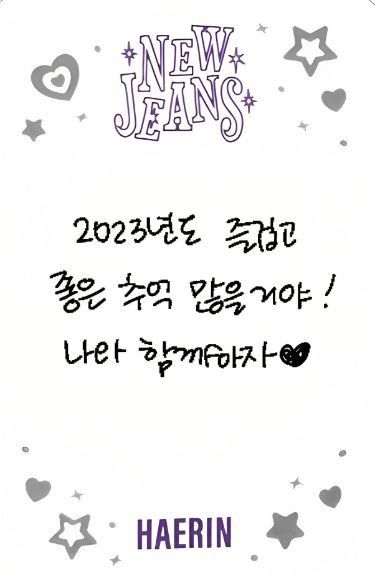 NEW
JEANS
2023년도 즐겁고
좋은 추억 많을거야!
나랑 함께하자♥
HAERIN